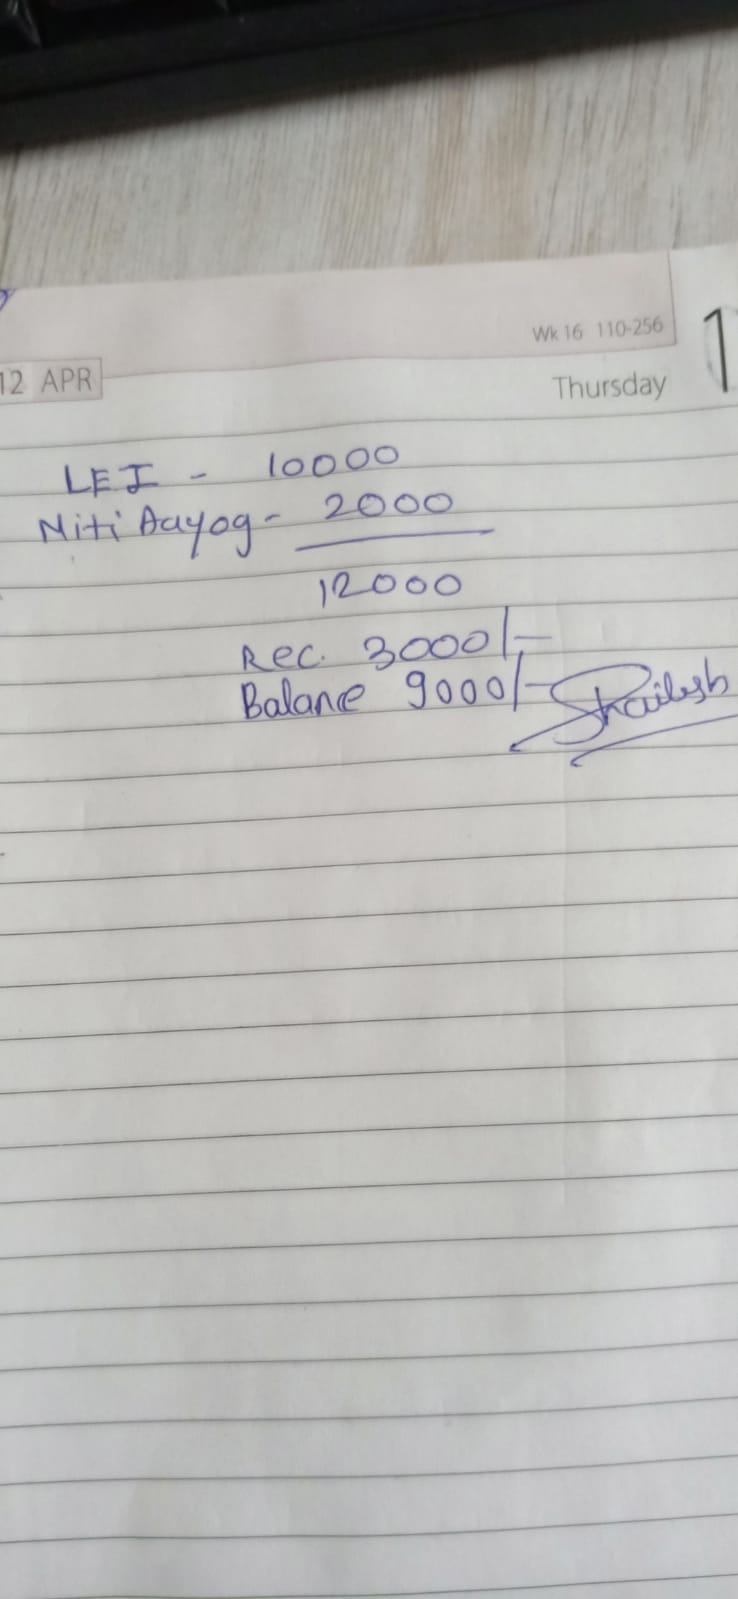 Wk 16 110-256
12 APR
Thursday
LEI - 10000
Niti Aayog - 2000
12000
Rec. 3000/-
Balane 9000/-
Shailesh